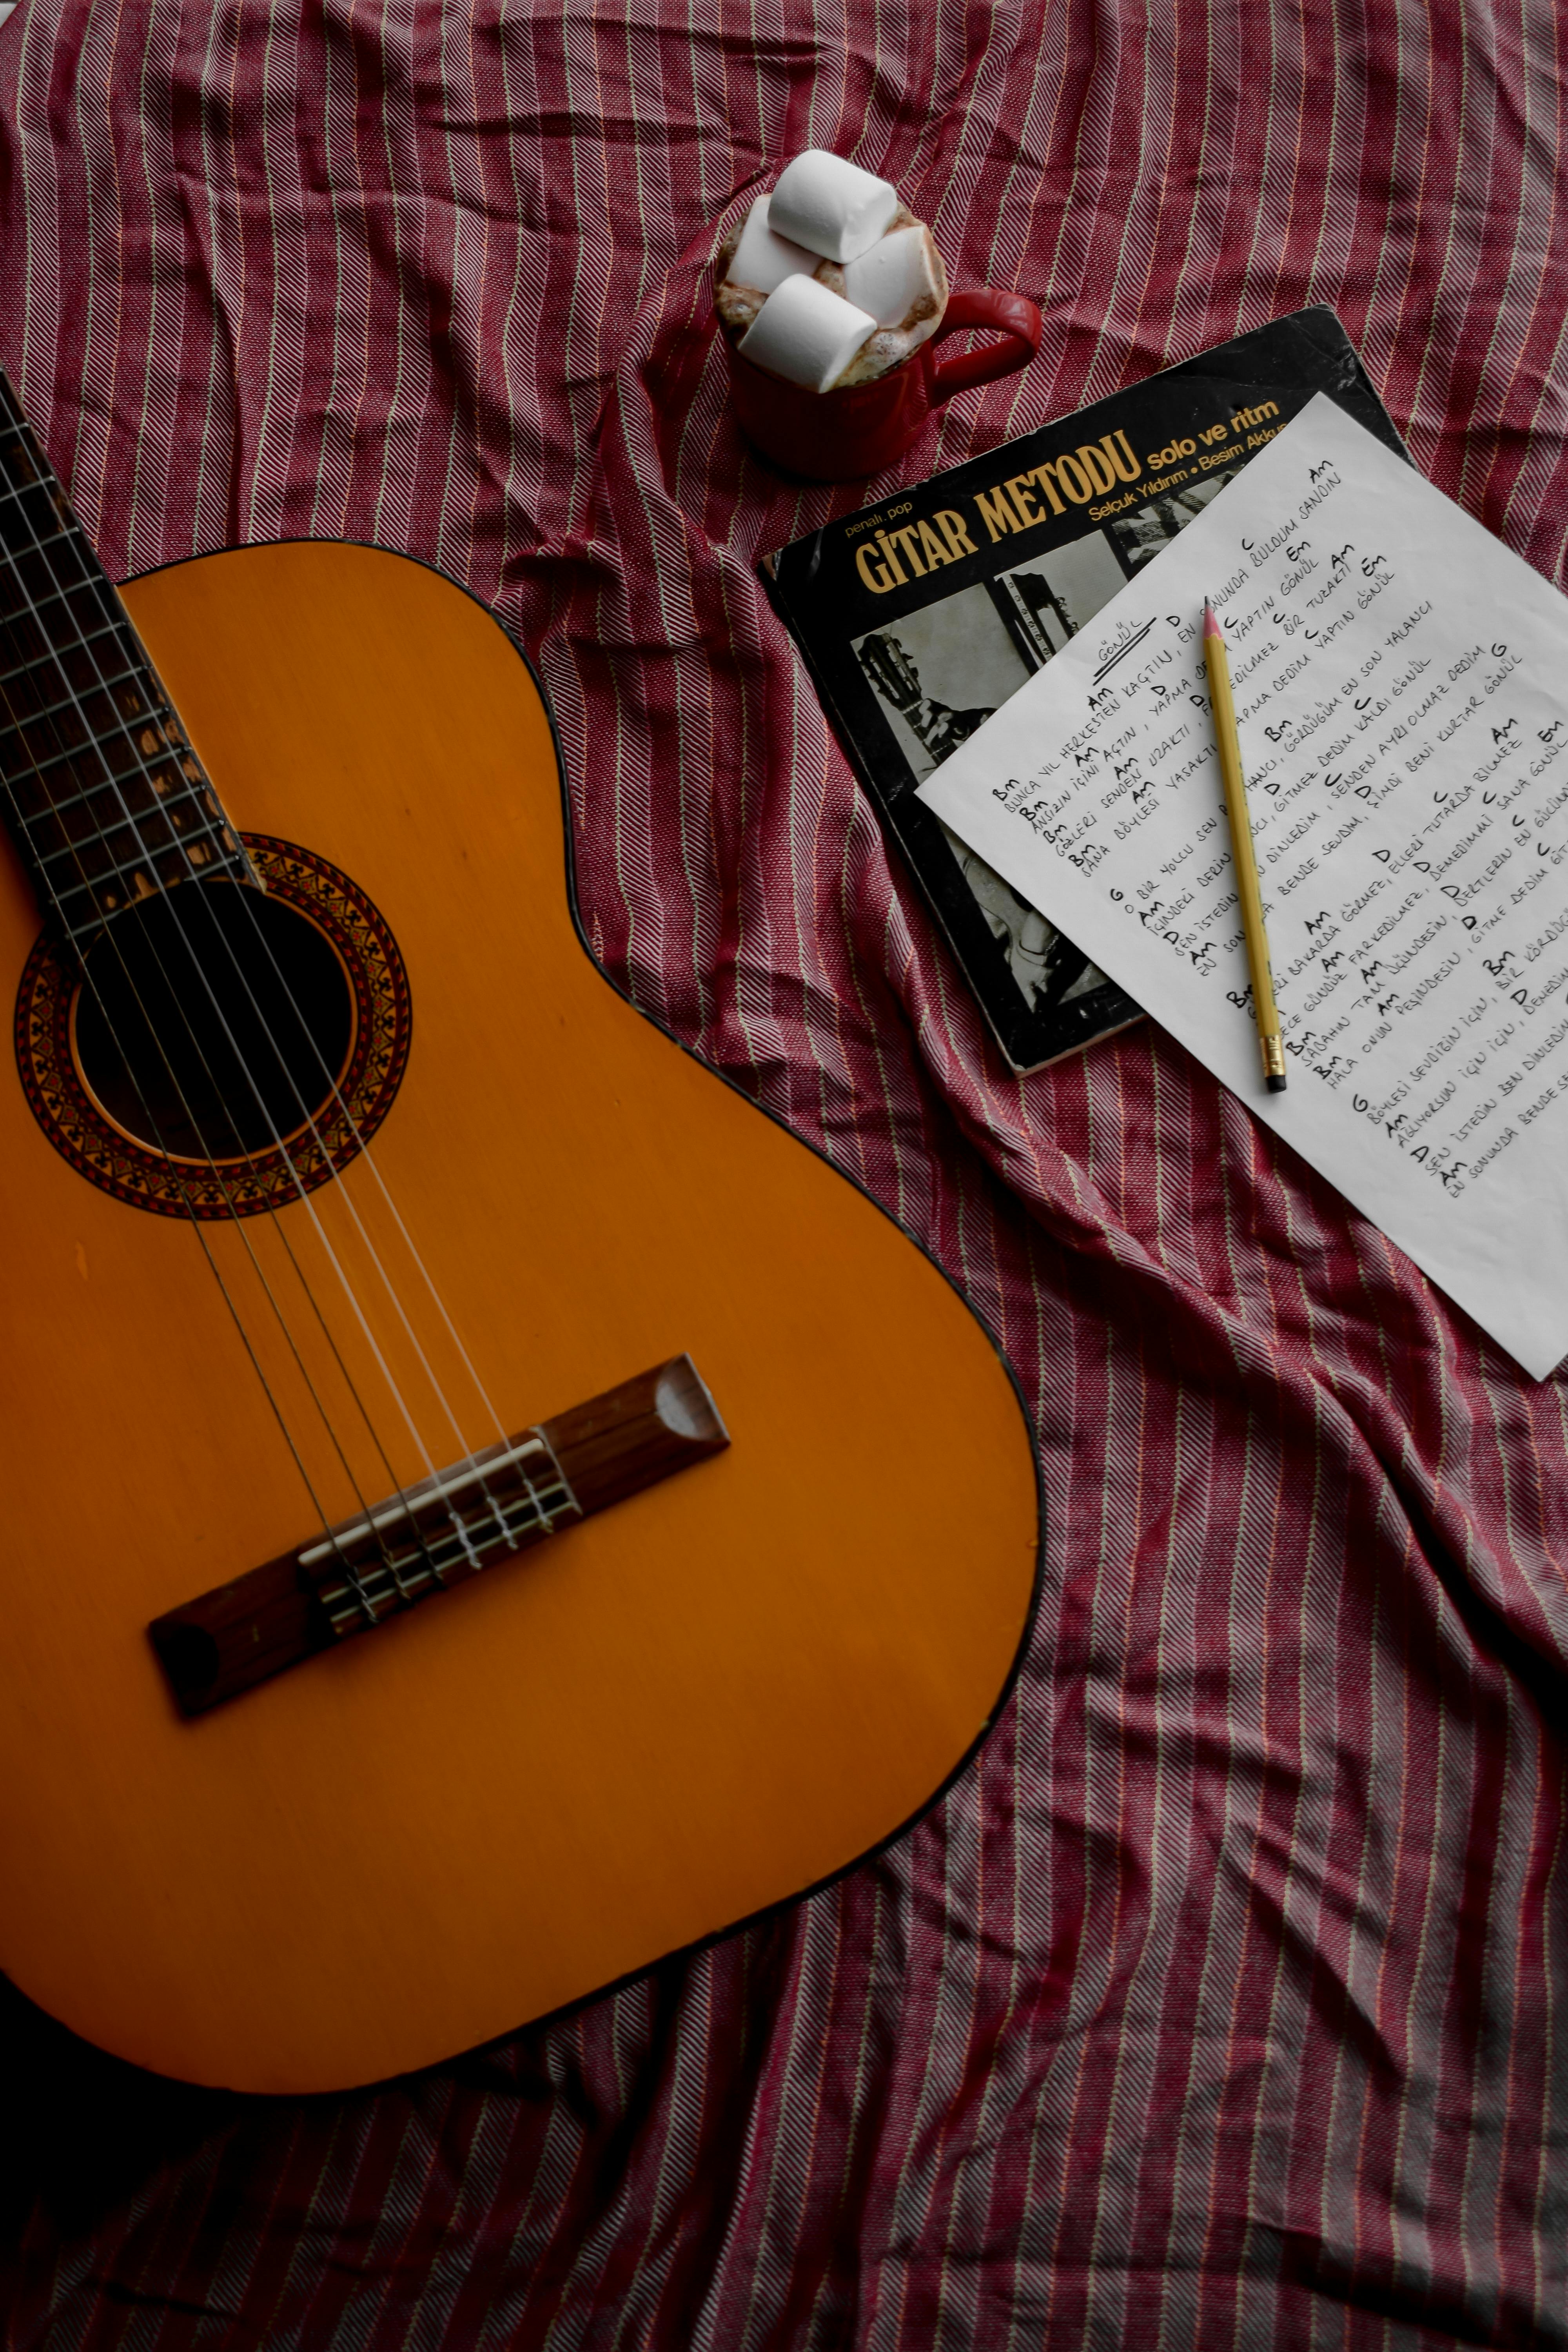 penalı, pop
GİTAR METODU solo ve ritm
Selçuk Yıldırım • Besim
GÖNÜL
Bm Am D C Am
BUNCA YIL HERKESTEN KAÇTIN, EN SONUNDA BULDUM SANDIN
Bm Am D C Em
ANSIZIN İÇİNİ AÇTIN, YAPMA YAPTIN GÖNÜL
Bm Am D C Am
GÖZLERİ SENDEN UZAKTI, EDİLMEZ BİR TUZAKTI
Bm Am C Em
SANA BÖYLESİ YASAKTI YAPMA DEDİM YAPTIN GÖNÜL
G Bm
O BİR YOLCU SEN HANCI, GÖRDÜĞÜM EN SON YALANCI
Am D C
İÇİNDEKİ DERİN NCI, GİTMEZ DEDİM KALDI GÖNÜL
D C G
SEN İSTEDİN DİNLEDİM, SENDEN AYRI OLMAZ DEDİM
Am D
EN SON DA BENDE SEVDİM, ŞİMDİ BENİ KURTAR GÖNÜL
Bm Am D C Am
BAKARDA GÖRMEZ, ELLERİ TUTARDA BİLMEZ
Am D C Em
GECE GÜNDÜZ FARKEDİLMEZ, DEMEDİMMİ SANA GÖNÜL
Bm Am D C
SABAHIN TAM ÜÇÜNDESİN, DERTLERİN EN GÜCÜN
Bm Am D C
HALA ONUN PEŞİNDESİN, GİTME DEDİM GİT
G Bm
BÖYLESİ SEVDİĞİN İÇİN, BİR KÖRDÜĞ
Am D
AĞLIYORSUN İÇİN İÇİN, DEMEDİM
D
SEN İSTEDİN BEN DİNLEDİ
Am
EN SONUNDA BENDE SE